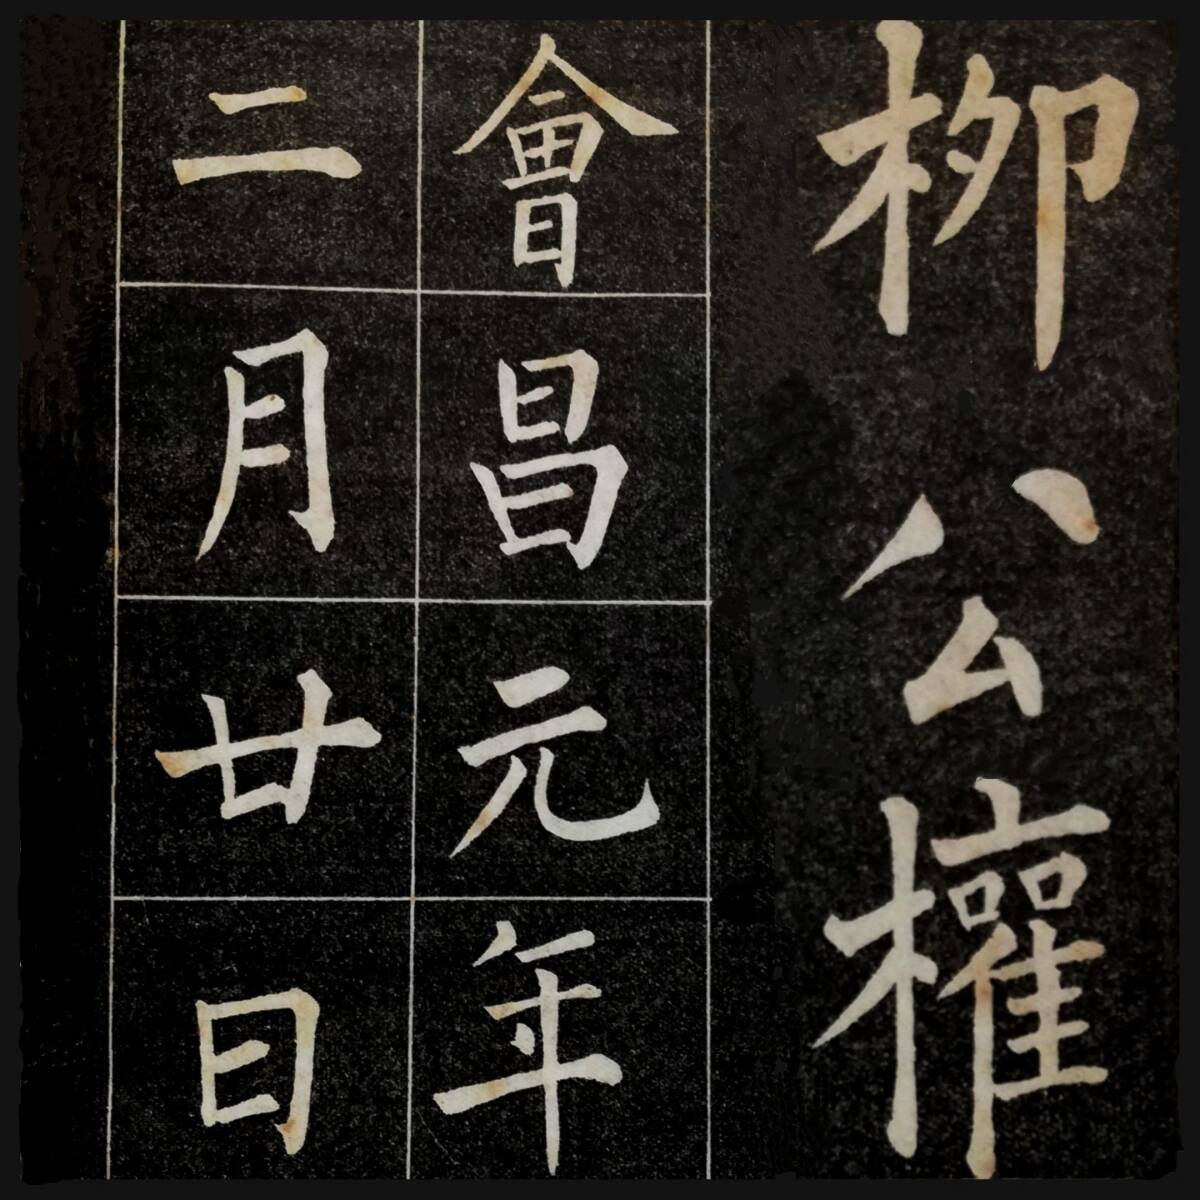 柳公權
會昌元年
二月廿日